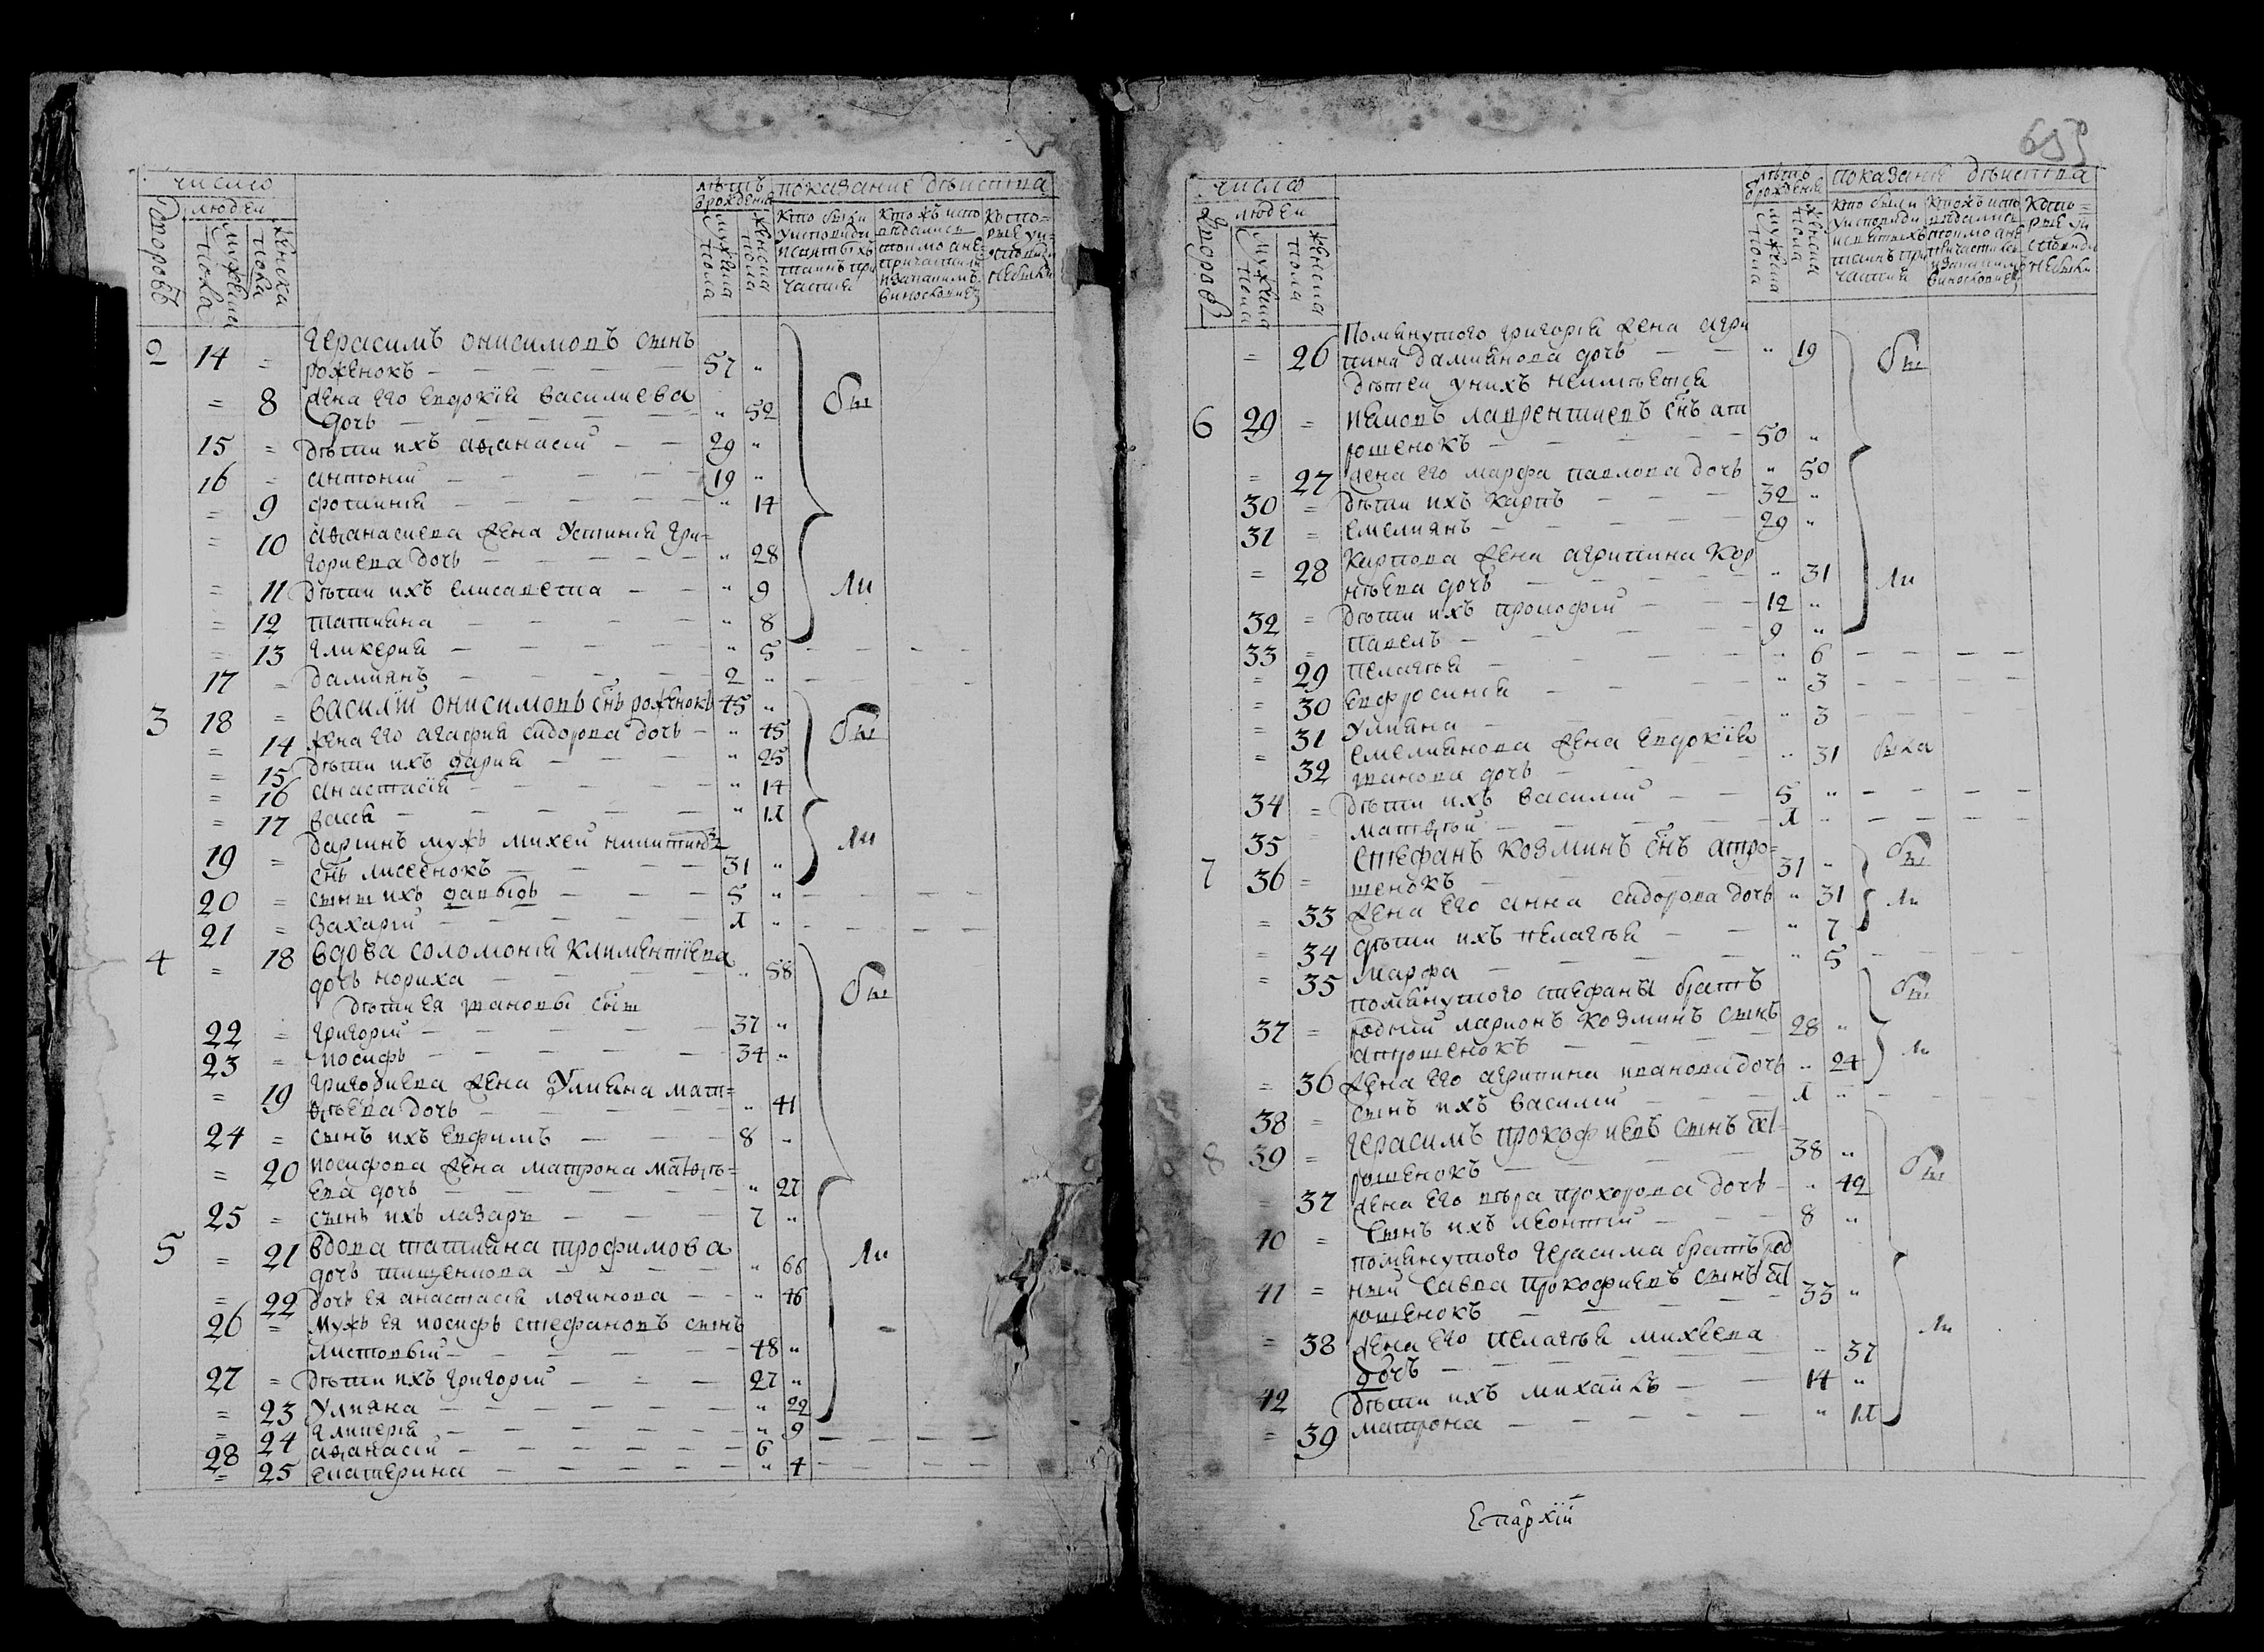 число
людеи
дворовъ
мужеска пола
женска пола
лѣтъ
ѿ рожденїя
мужеска пола
женска пола
показание дѣиства
Кто были
уисповѣди
исвятыхъ
таинъ при
частия
Кто жъ испо
вѣдался
токмо ане
причастился
изакаимъ
винословиемъ
Кото=
рые уи=
сповѣди
небыли
2 14 = Герасимъ онисимовъ сынъ
роженокъ — 57 "
= 8 жена его евдокїя василиева
дочь — " 52
бы
15 = дѣти ихъ аѳанасіи — 29 "
16 = антонии — 19 "
= 9 фотинія — " 14
= 10 аѳанасиева жена Устинія Гри=
гориева дочь — " 28
= 11 дѣти ихъ елисавета — " 9
ли
= 12 татияна — " 8
= 13 гликерия — " 5
17 = дамиянъ — 2 "
3 18 = василіи онисимовъ снъ роженокъ 45 "
= 14 жена его агафия сидорова дочь — " 45
бы
= 15 дѣти ихъ дария — " 25
= 16 анастасїя — " 14
= 17 васса — " 11
19 = дариинъ мужъ михеи никитинъ
снъ лисеенокъ — 31 "
ли
20 = сыны ихъ давыдъ — 5 "
21 = захарїи — 1 "
4 = 18 вдова соломонїя климентїева
дочь нориха — " 58
дѣти ея ивановы сны
бы
22 = григорїи — 37 "
23 = иосифъ — 34 "
= 19 григориева жена Улияна мат=
ѳѣева дочь — " 41
24 = сынъ ихъ евфимъ — 8 "
= 20 иосифова жена матрона матѳѣ=
ева дочь — " 27
25 = сынъ ихъ лазаръ — 7 "
5 = 21 вдова татияна трофимова
дочь тищенкова — " 66
ли
= 22 дочь ея анастасїя логинова — " 46
26 = мужъ ея иосифъ стефановъ сынъ
листовыи — 48 "
27 = дѣти ихъ григорїи — 27 "
= 23 Улияна — " 22
= 24 гликерїя — " 9
28 = аѳанасїи — 6 "
= 25 екатерина — " 4
659
число
людеи
дворовъ
мужеска пола
женска пола
лѣтъ
ѿ рожденїя
мужеска пола
женска пола
показание дѣиства
Кто были
уисповѣди
исвятыхъ
таинъ при
частия
Кто жъ испо
вѣдались
токмо ане
причастился
изакаимъ
винословиемъ
Кото=
рые уи
сповѣди
небыли
Помянутого григорїя жена агри
= 26 пина дамиянова дочь — " 19
дѣтеи унихъ неимѣется
бы
6 29 = иамовъ лаврентиевъ снъ ат
рошенокъ — 50 "
= 27 жена его марфа павлова дочь " 50
30 = дѣти ихъ карпъ — 32 "
31 = емелиянъ — 29 "
= 28 карпова жена агрипина кор
нѣева дочь — " 31
ли
32 = дѣти ихъ прокофїи — 12 "
33 = павелъ — 9 "
= 29 пелагѣя — " 6
= 30 евфросинїя — " 3
= 31 Улияна — " 3
= 32 емелиянова жена евдокїя
иванова дочь — " 31 была
34 = дѣти ихъ василии — 5 "
35 = матѳѣи — 1 "
7 36 = стефанъ козминъ снъ атро=
шенокъ — 31 "
бы
= 33 жена его анна сидорова дочь " 31
ли
= 34 дѣти ихъ пелагѣя — " 7
= 35 марфа — " 5
помянутого стефана братъ
37 = родныи ларионъ козминъ сынъ
атрошенокъ — 28 "
бы
= 36 жена его агрипина иванова дочь " 24
ли
38 = сынъ ихъ василии — 1 "
8 39 = Герасимъ прокофиевъ сынъ ат=
рошенокъ — 38 "
бы
= 37 жена его вѣра прохорова дочь — " 42
40 = сынъ ихъ леонтїи — 8 "
помянутого герасима братъ род
41 = ныи савва прокофиевъ сынъ ат
рошенокъ — 33 "
= 38 жена его пелагѣя михѣева
дочь — " 37
ли
42 дѣти ихъ михаилъ — 14 "
= 39 матрона — " 11
Епархїи